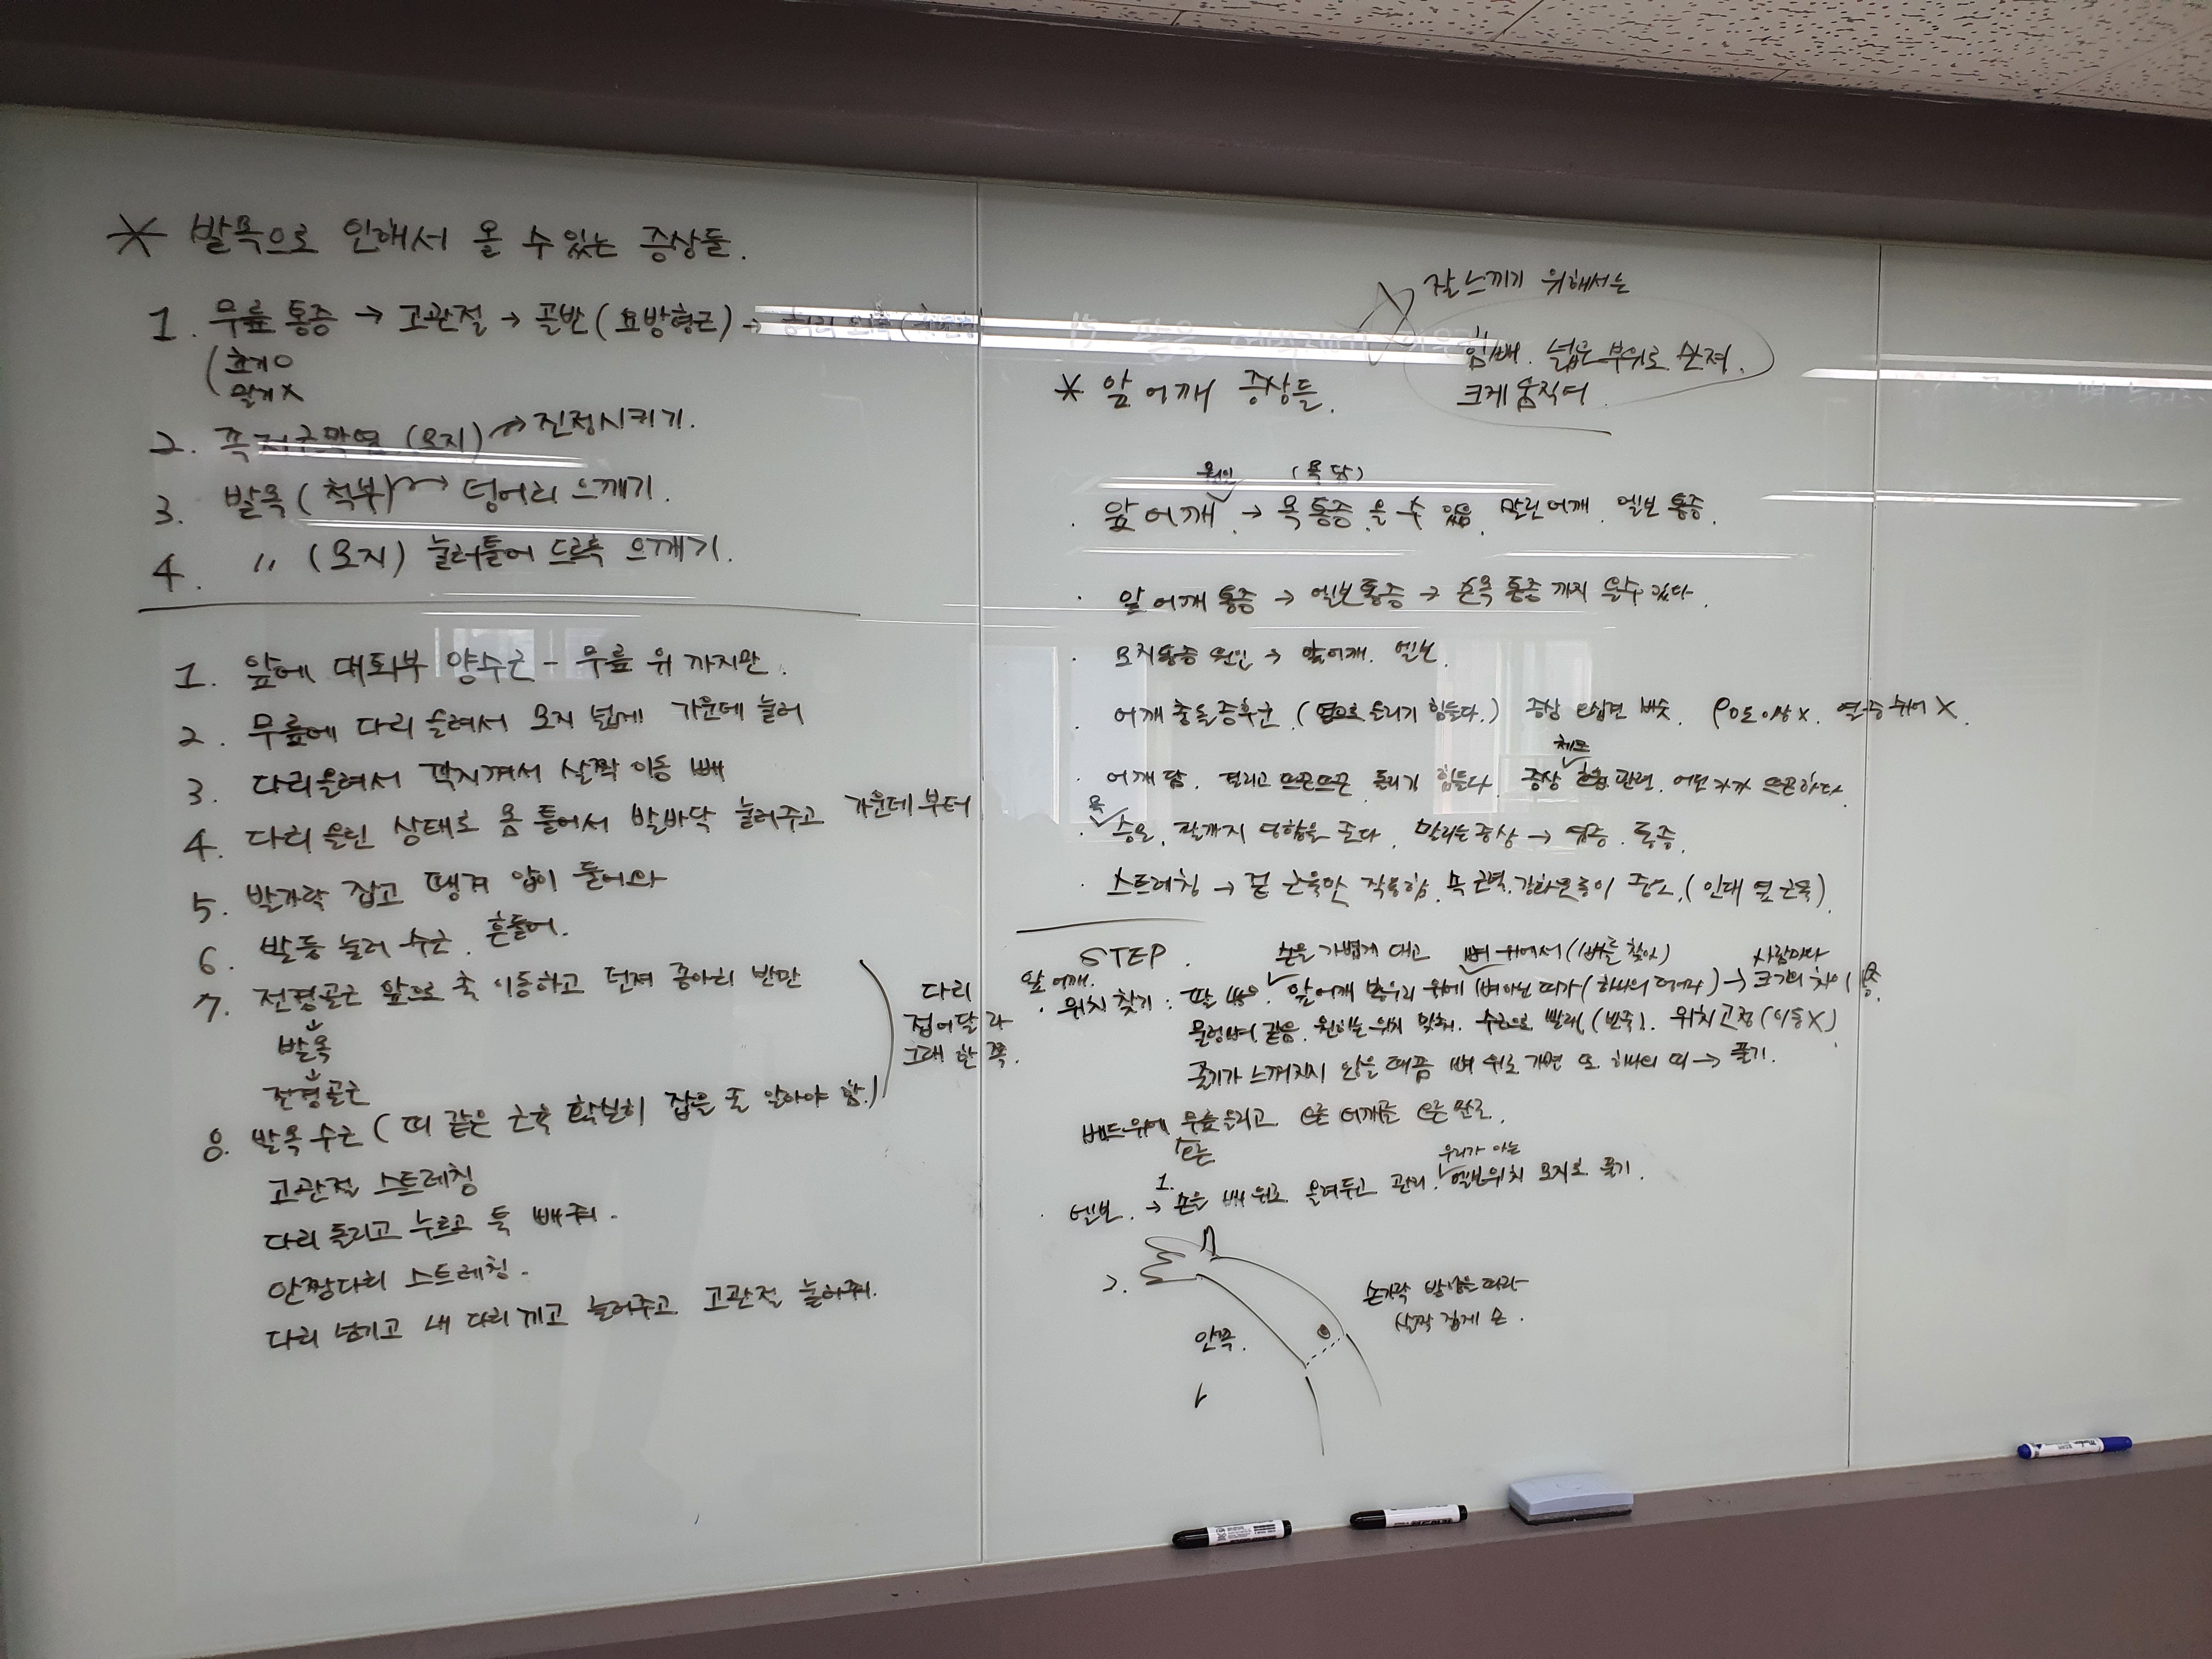 * 발목으로 인해서 올 수 있는 증상들.
1. 무릎통증 → 고관절 → 골반 (요방형근) →
크게 O
말게 X
2. 족저근막염 (모지) → 진정시키기.
3. 발목 (척부) → 덩어리 으깨기.
4. " (모지) 눌러틀어 드르륵 으깨기.
1. 앞에 대퇴부 양수근 - 무릎 위 까지만.
2. 무릎에 다리 올려서 모지 넓게 가운데 눌러
3. 다리올려서 깍지껴서 살짝 이동 빼
4. 다리 올린 상태로 몸 틀어서 발바닥 눌러주고 가운데부터
5. 발가락 잡고 땡겨 압이 들어와
6. 발등 눌러 수근. 흔들어.
7. 전경골근 앞으로 축 이동하고 던져 종아리 반만
↓
발목
↓
전경골근
8. 발목 수근 (띠 같은 근육 확실히 잡을 줄 알아야 함.)
다리
접어달라
그래 한쪽.
고관절 스트레칭
다리 돌리고 누르고 툭 빼줘.
안짱다리 스트레칭.
다리 넘기고 내 다리 끼고 눌러주고 고관절 눌러줘.
잘 느끼기 위해서는
힘빼. 넓은 부위로 만져.
크게 움직여.
* 앞 어깨 증상들.
원인 (목 담)
· 앞 어깨 → 목 통증 올 수 있음. 말린어깨. 엘보 통증.
· 앞 어깨 통증 → 엘보통증 → 손목 통증 까지 올수 있다.
· 모지통증 원인 → 앞어깨. 엘보.
· 어깨 충돌증후군. (옆으로 올리기 힘들다.) 증상 오십견 비슷. 90도 이상 X. 열중쉬어 X.
· 어깨 담. 결리고 뜨끈뜨끈 돌리기 힘들다. 증상 관련.
목
· 승모. 팔까지 영향을 준다. 말리는 증상 → 염증. 통증.
· 스트레칭 → 겉 근육만 작용함. 속 근력. 강화운동이 중요. (인대 옆 근육)
STEP. 손을 가볍게 대고 뼈 위에서 (뼈를 찾아) 사람마다
앞 어깨.
· 위치 찾기 : 팔 앞어깨 봉우리 위에 뼈아닌 띠가 (하나의 덩어리) → 크기의 차이
물렁뼈 같음. 원하는 위치 맞춰. 수근으로 빨래 (반죽). 위치고정 (이동X)
줄기가 느껴지지 않을 때쯤 뼈 위로 가면 또 하나의 띠 → 풀기.
베드위에 무릎 올리고 오른 어깨를 오른 팔로.
오른
우리가 아는
· 엘보. → 1. 손을 배 위로 올려두고 관리. 엘보위치 모지로 풀기.
2.
안쪽.
손가락 방향을 따라
살짝 집게 손.